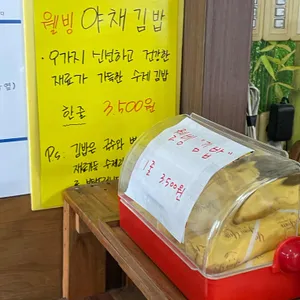 웰빙 야채김밥
· 9가지 신선하고 건강한
재료가 가득한 수제 김밥
한줄 3,500원
Ps: 김밥은 국수와
웰빙 김밥
1줄 3,500원